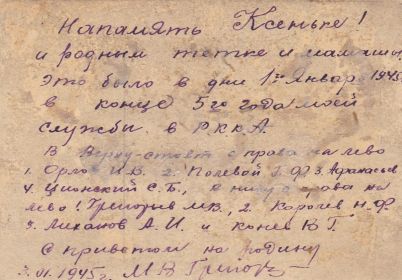 Напамять Ксеньке!
и родным тетке и мамаши,
это было в дни 1го Январ 1945
в конце 5го года моей
службы в РККА.
В Верху-стоят с права на лево
1. Орлов И.В. 2. Полевой Г.Ф 3. Афанасьев
4. Ционский С.Б., в низу с права на
лево 1. Григорив М.В., 2. Королев Н.Ф.
3. Лиханов А.И. и Конев Ю.Г.
С приветом на родину
3.01.1945г. М В